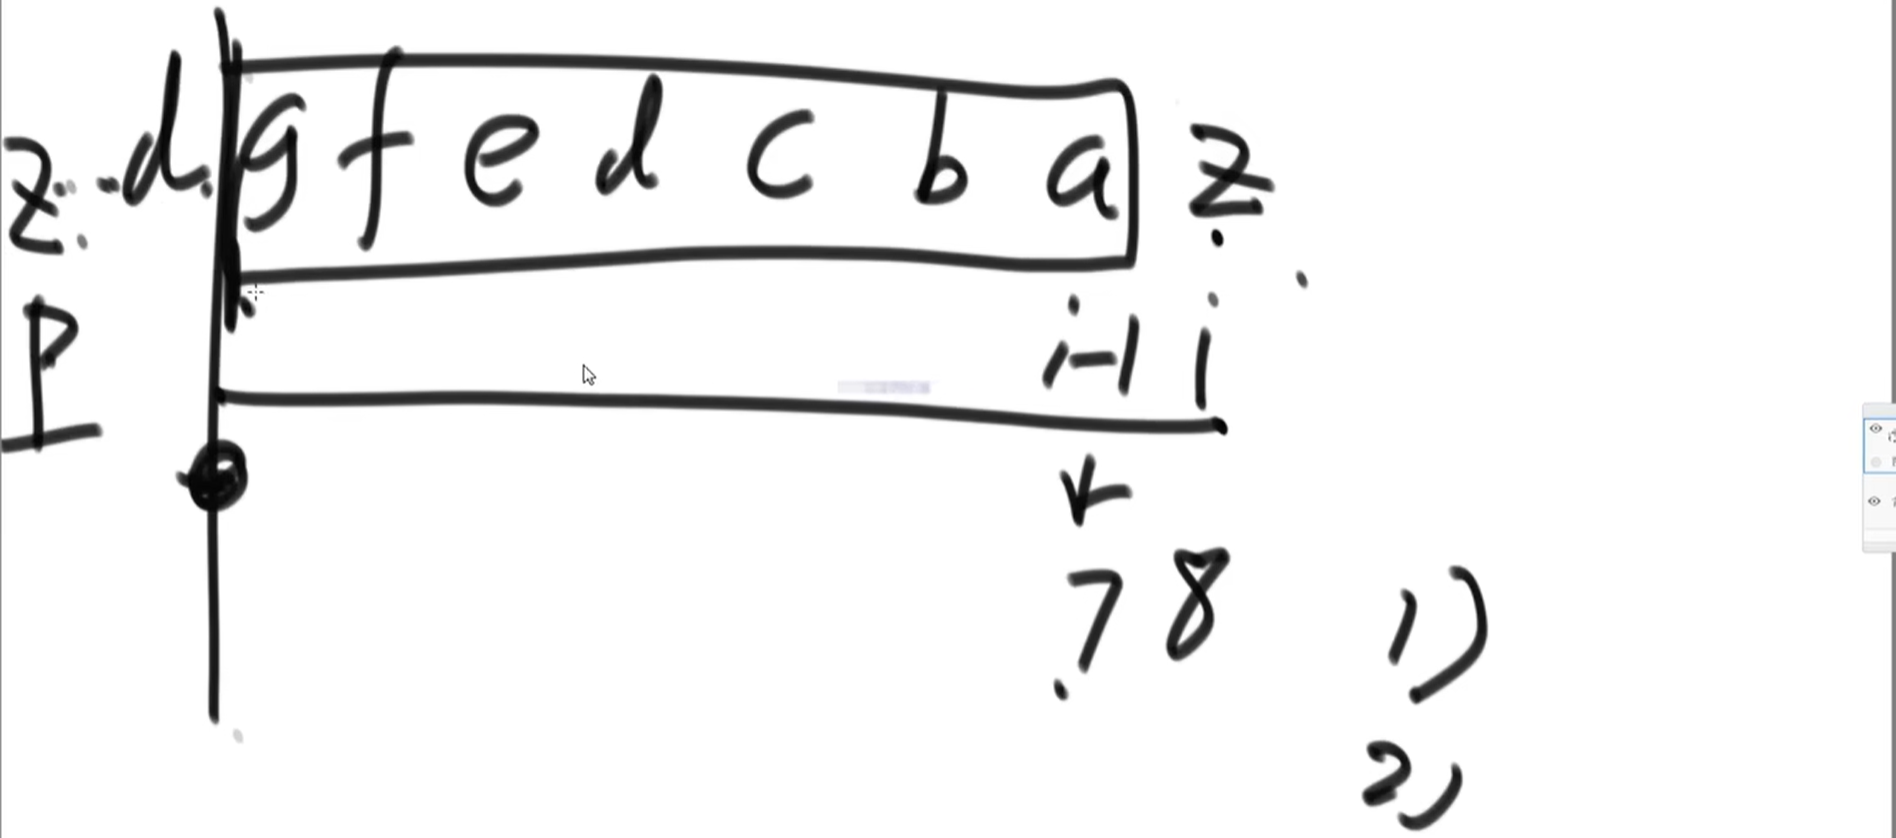 z. -d. g f e d c b a z
P i-1 i
r
7 8
1)
2)